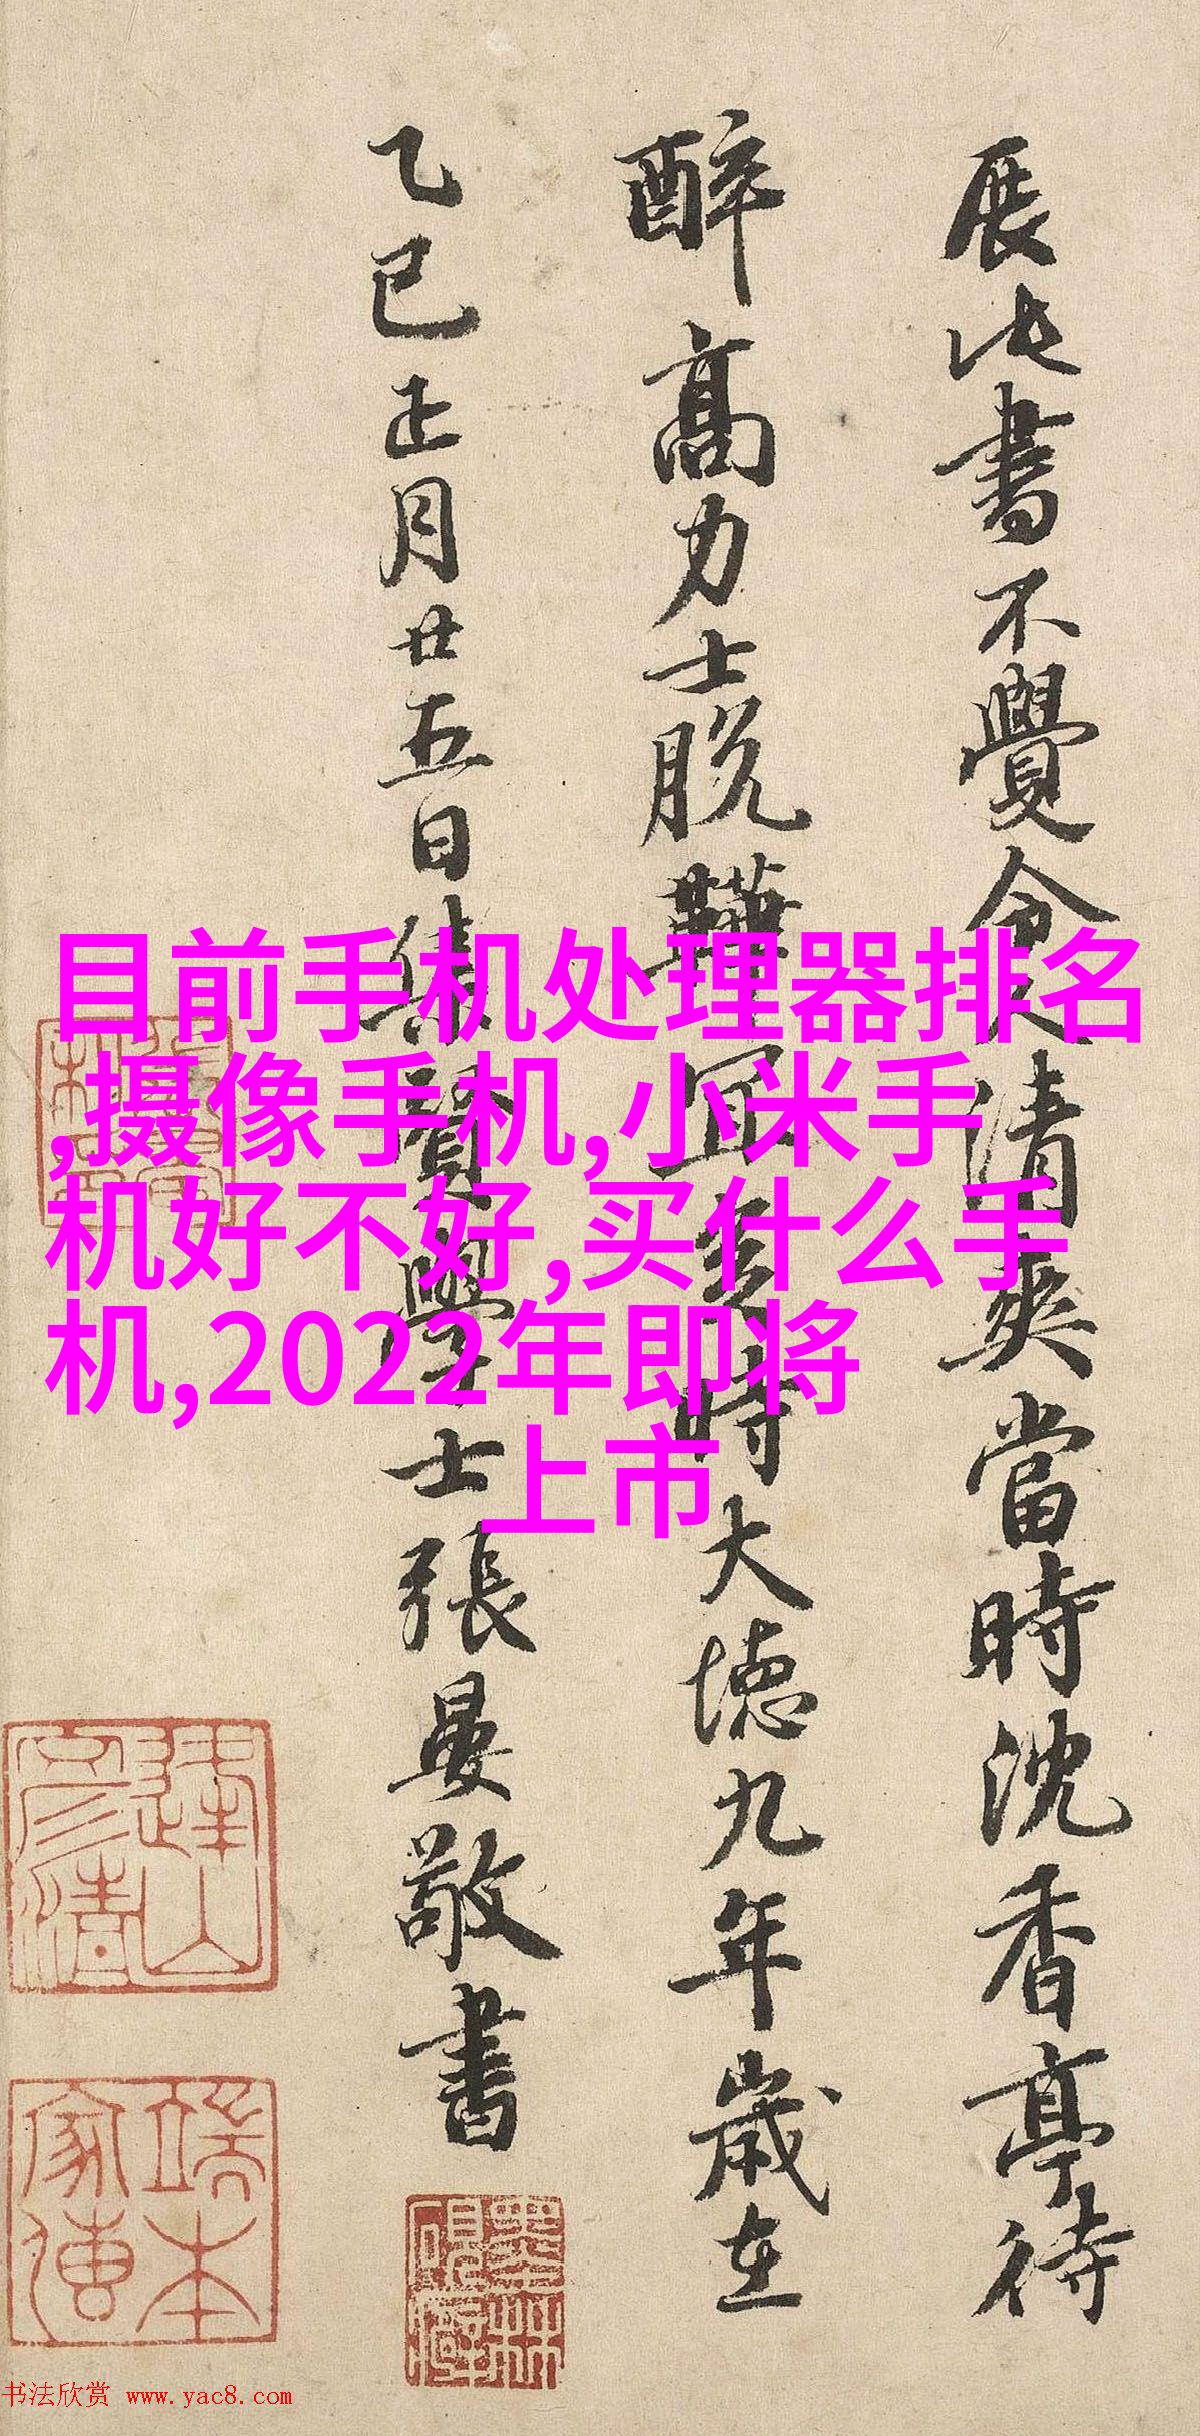 展此書不覺令人清爽當時沈香亭待
醉高力士脱鞾宜矣時大德九年歲在
乙巳正月廿五日集賢學士張晏敬書
目前手机处理器排名
,摄像手机,小米手
机好不好,买什么手
机,2022年即将
上市
書法欣赏 www.yac8.com